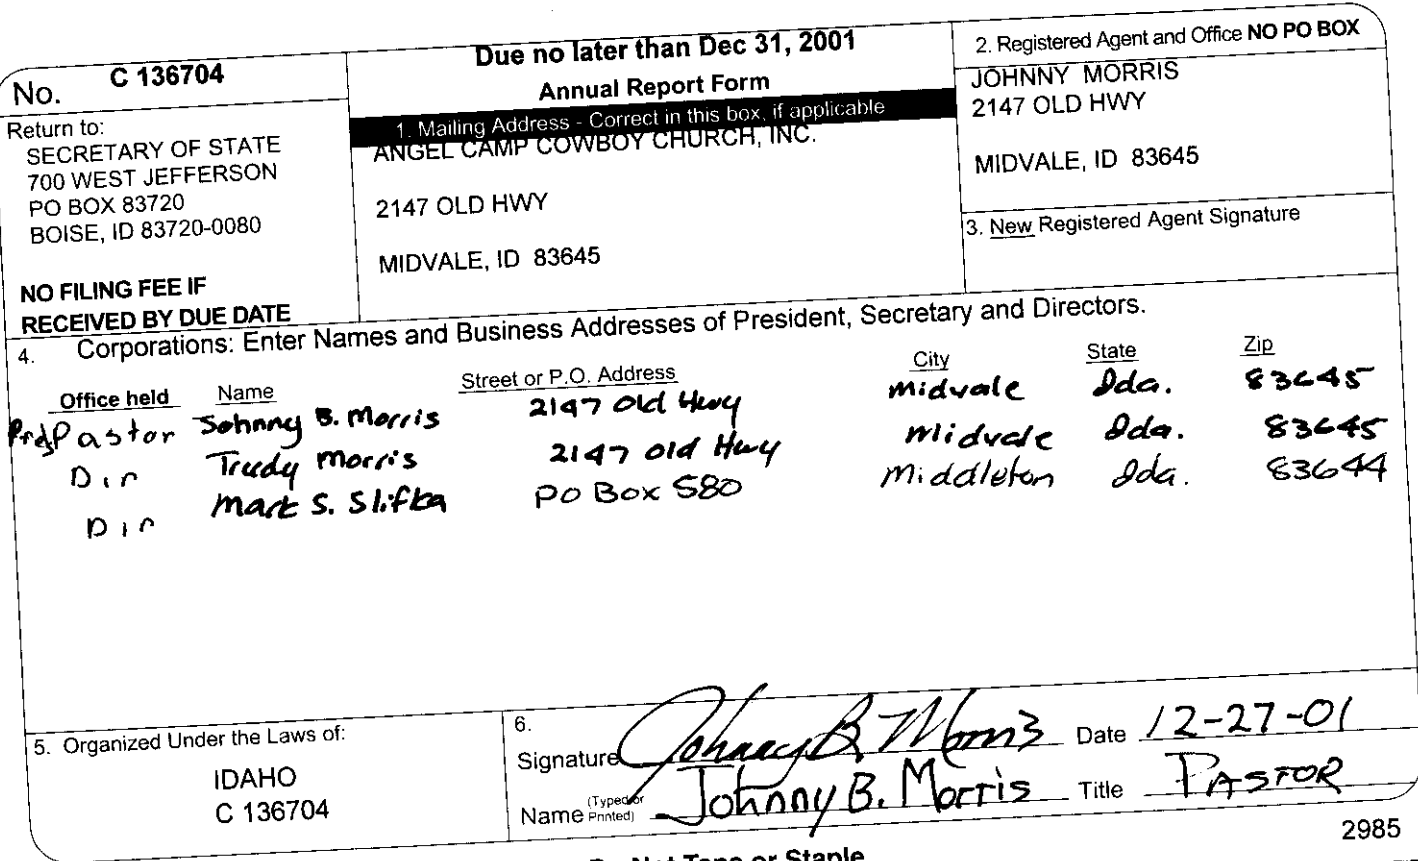 No. C 136704
Return to:
SECRETARY OF STATE
700 WEST JEFFERSON
PO BOX 83720
BOISE, ID 83720-0080
NO FILING FEE IF
RECEIVED BY DUE DATE
Due no later than Dec 31, 2001
Annual Report Form
1. Mailing Address - Correct in this box, if applicable
ANGEL CAMP COWBOY CHURCH, INC.
2147 OLD HWY
MIDVALE, ID 83645
2. Registered Agent and Office NO PO BOX
JOHNNY MORRIS
2147 OLD HWY
MIDVALE, ID 83645
3. New Registered Agent Signature
4. Corporations: Enter Names and Business Addresses of President, Secretary and Directors.
Office held Name Street or P.O. Address City State Zip
Pastor Johnny B. Morris 2147 Old Hwy Midvale Ida. 83645
Dir Trudy Morris 2147 Old Hwy Midvale Ida. 83645
Dir Mark S. Slifka PO Box 580 Middleton Ida. 83644
5. Organized Under the Laws of:
IDAHO
C 136704
6.
Signature Johnny B. Morris Date 12-27-01
Name (Typed or Printed) Johnny B. Morris Title PASTOR
2985
Do Not Tape or Staple